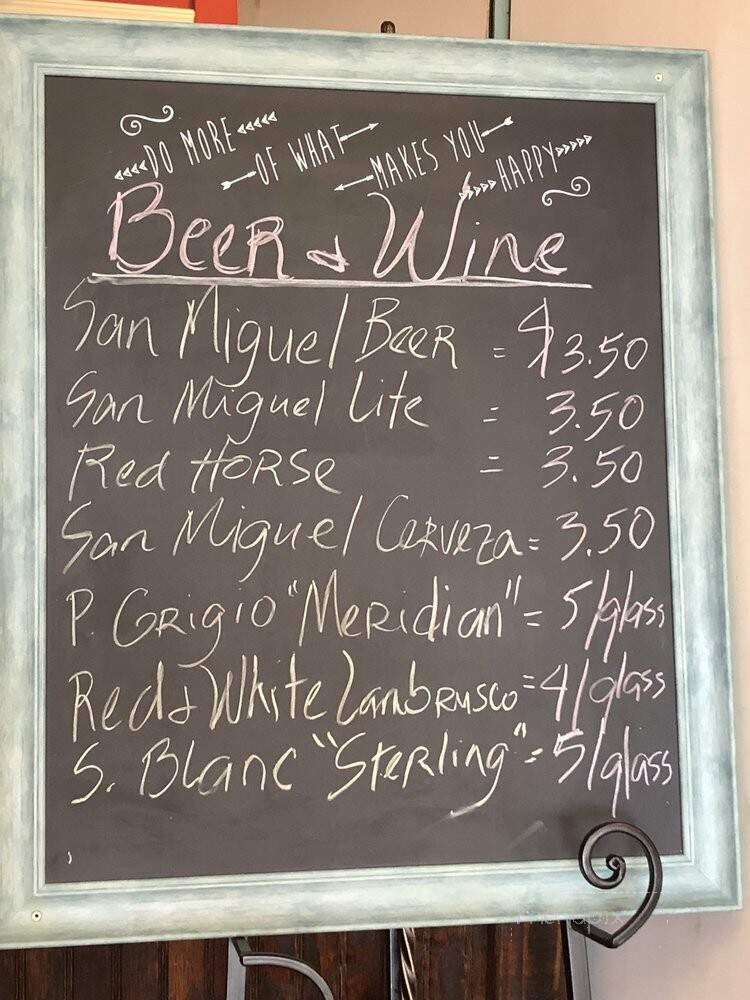 DO MORE
OF WHAT
MAKES YOU
HAPPY
BEER & WINE
San Miguel BEER = $3.50
San Miguel Lite = 3.50
Red HORSe = 3.50
San Miguel CeRveza = 3.50
P. GRIGIO "MeRidian" = 5/glass
Red & White LambRusco = 4/glass
S. Blanc "SteRling" = 5/glass